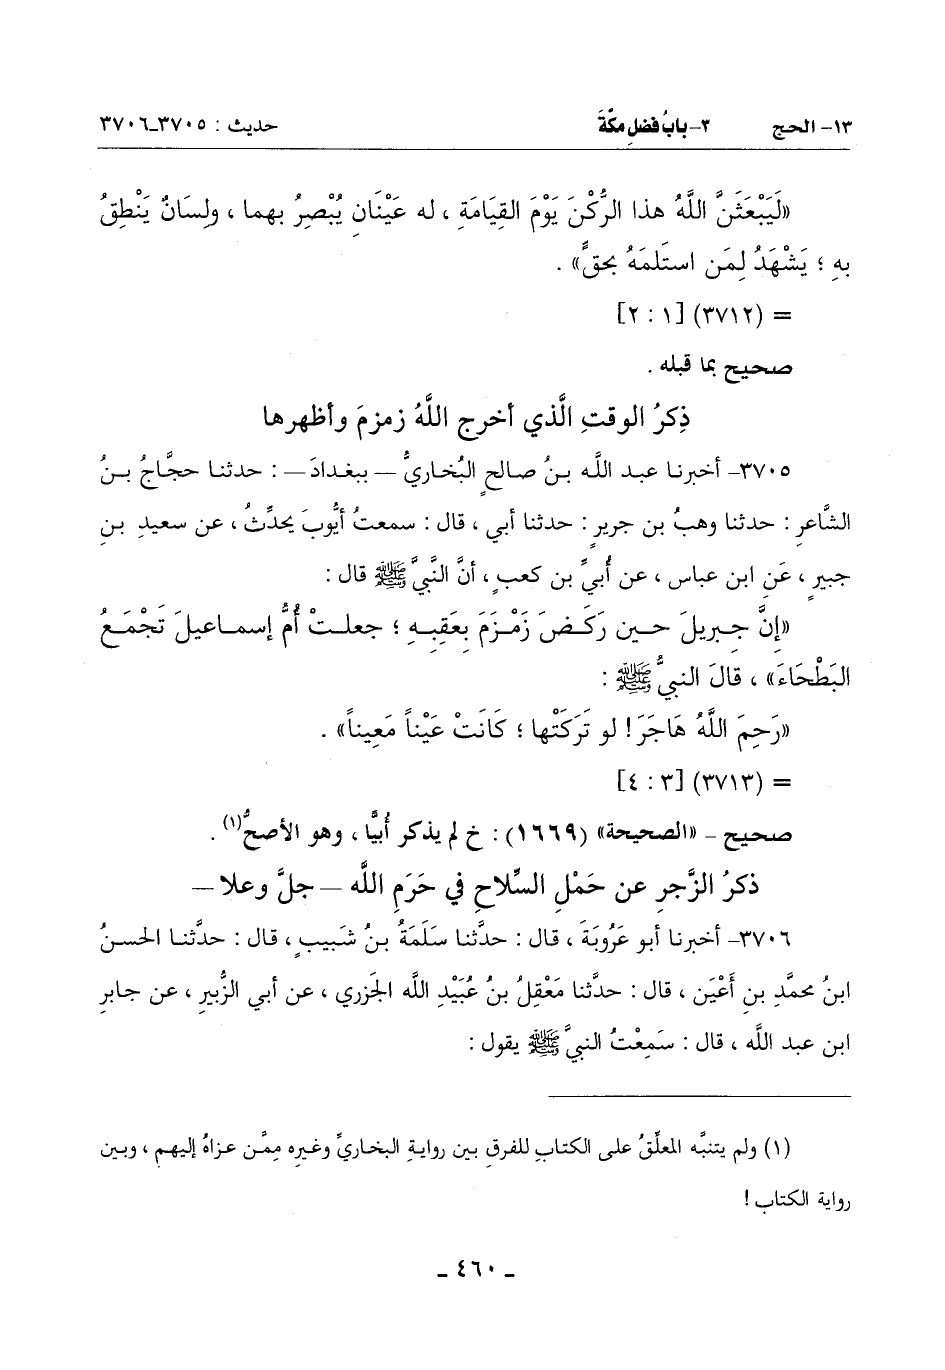 ١٣- الحج ٢- بابُ فضلِ مكّةَ حديث : ٣٧٠٥-٣٧٠٦
«لَيَبْعَثَنَّ اللَّهُ هذا الرُّكْنَ يَوْمَ القِيَامَةِ ، له عَيْنَانِ يُبْصِرُ بهما ، ولِسَانٌ يَنْطِقُ
بهِ ؛ يَشْهَدُ لِمَن استَلمَهُ بحقٍّ» .
= (٣٧١٢) [١ : ٢]
صحيح بما قبله .
ذِكرُ الوقتِ الَّذي أخرج اللَّهُ زمزمَ وأظهرها
٣٧٠٥- أخبرنا عبد اللَّه بنُ صالحٍ البُخاريُّ — ببغدادَ — : حدثنا حجَّاجُ بنُ
الشَّاعرِ : حدثنا وهبُ بن جريرٍ : حدثنا أبي ، قال : سمعتُ أيُّوبَ يحدِّثُ ، عن سعيدِ بنِ
جبيرٍ ، عَنِ ابن عباس ، عن أُبيِّ بن كعبٍ ، أنَّ النَّبيَّ ﷺ قال :
«إنَّ جـبريلَ حـين رَكَـضَ زَمْـزَمَ بِعَقِبِـهِ ؛ جعلـتْ أُمُّ إسمـاعيلَ تَجْمَـعُ
البَطْحَاءَ» ، قالَ النبيُّ ﷺ :
«رَحِمَ اللَّهُ هَاجَرَ ! لو تَرَكَتْها ؛ كَانَتْ عَيْناً مَعِيناً» .
= (٣٧١٣) [٣ : ٤]
صحيح - «الصحيحة» (١٦٦٩) : خ لم يذكر أُبيًّا ، وهو الأصحُّ(١) .
ذكرُ الزَّجرِ عن حَمْلِ السِّلاحِ في حَرَمِ اللَّه — جلَّ وعلا —
٣٧٠٦- أخبرنا أبو عَرُوبَةَ ، قال : حدَّثنا سَلَمَةُ بنُ شَبيبٍ ، قال : حدَّثنا الحسنُ
ابنُ محمَّدِ بنِ أَعْيَن ، قال : حدَّثنا مَعْقِلُ بنُ عُبَيْدِ اللَّه الجَزري ، عن أبي الزُّبيرِ ، عن جابرِ
ابن عبد اللَّه ، قال : سَمِعْتُ النبيَّ ﷺ يقول :
(١) ولم يتنبَّه المعلِّقُ على الكتابِ للفرقِ بين روايةِ البخاريِّ وغيره مِمَّن عزاهُ إليهم ، وبين
رواية الكتاب !
- ٤٦٠ -